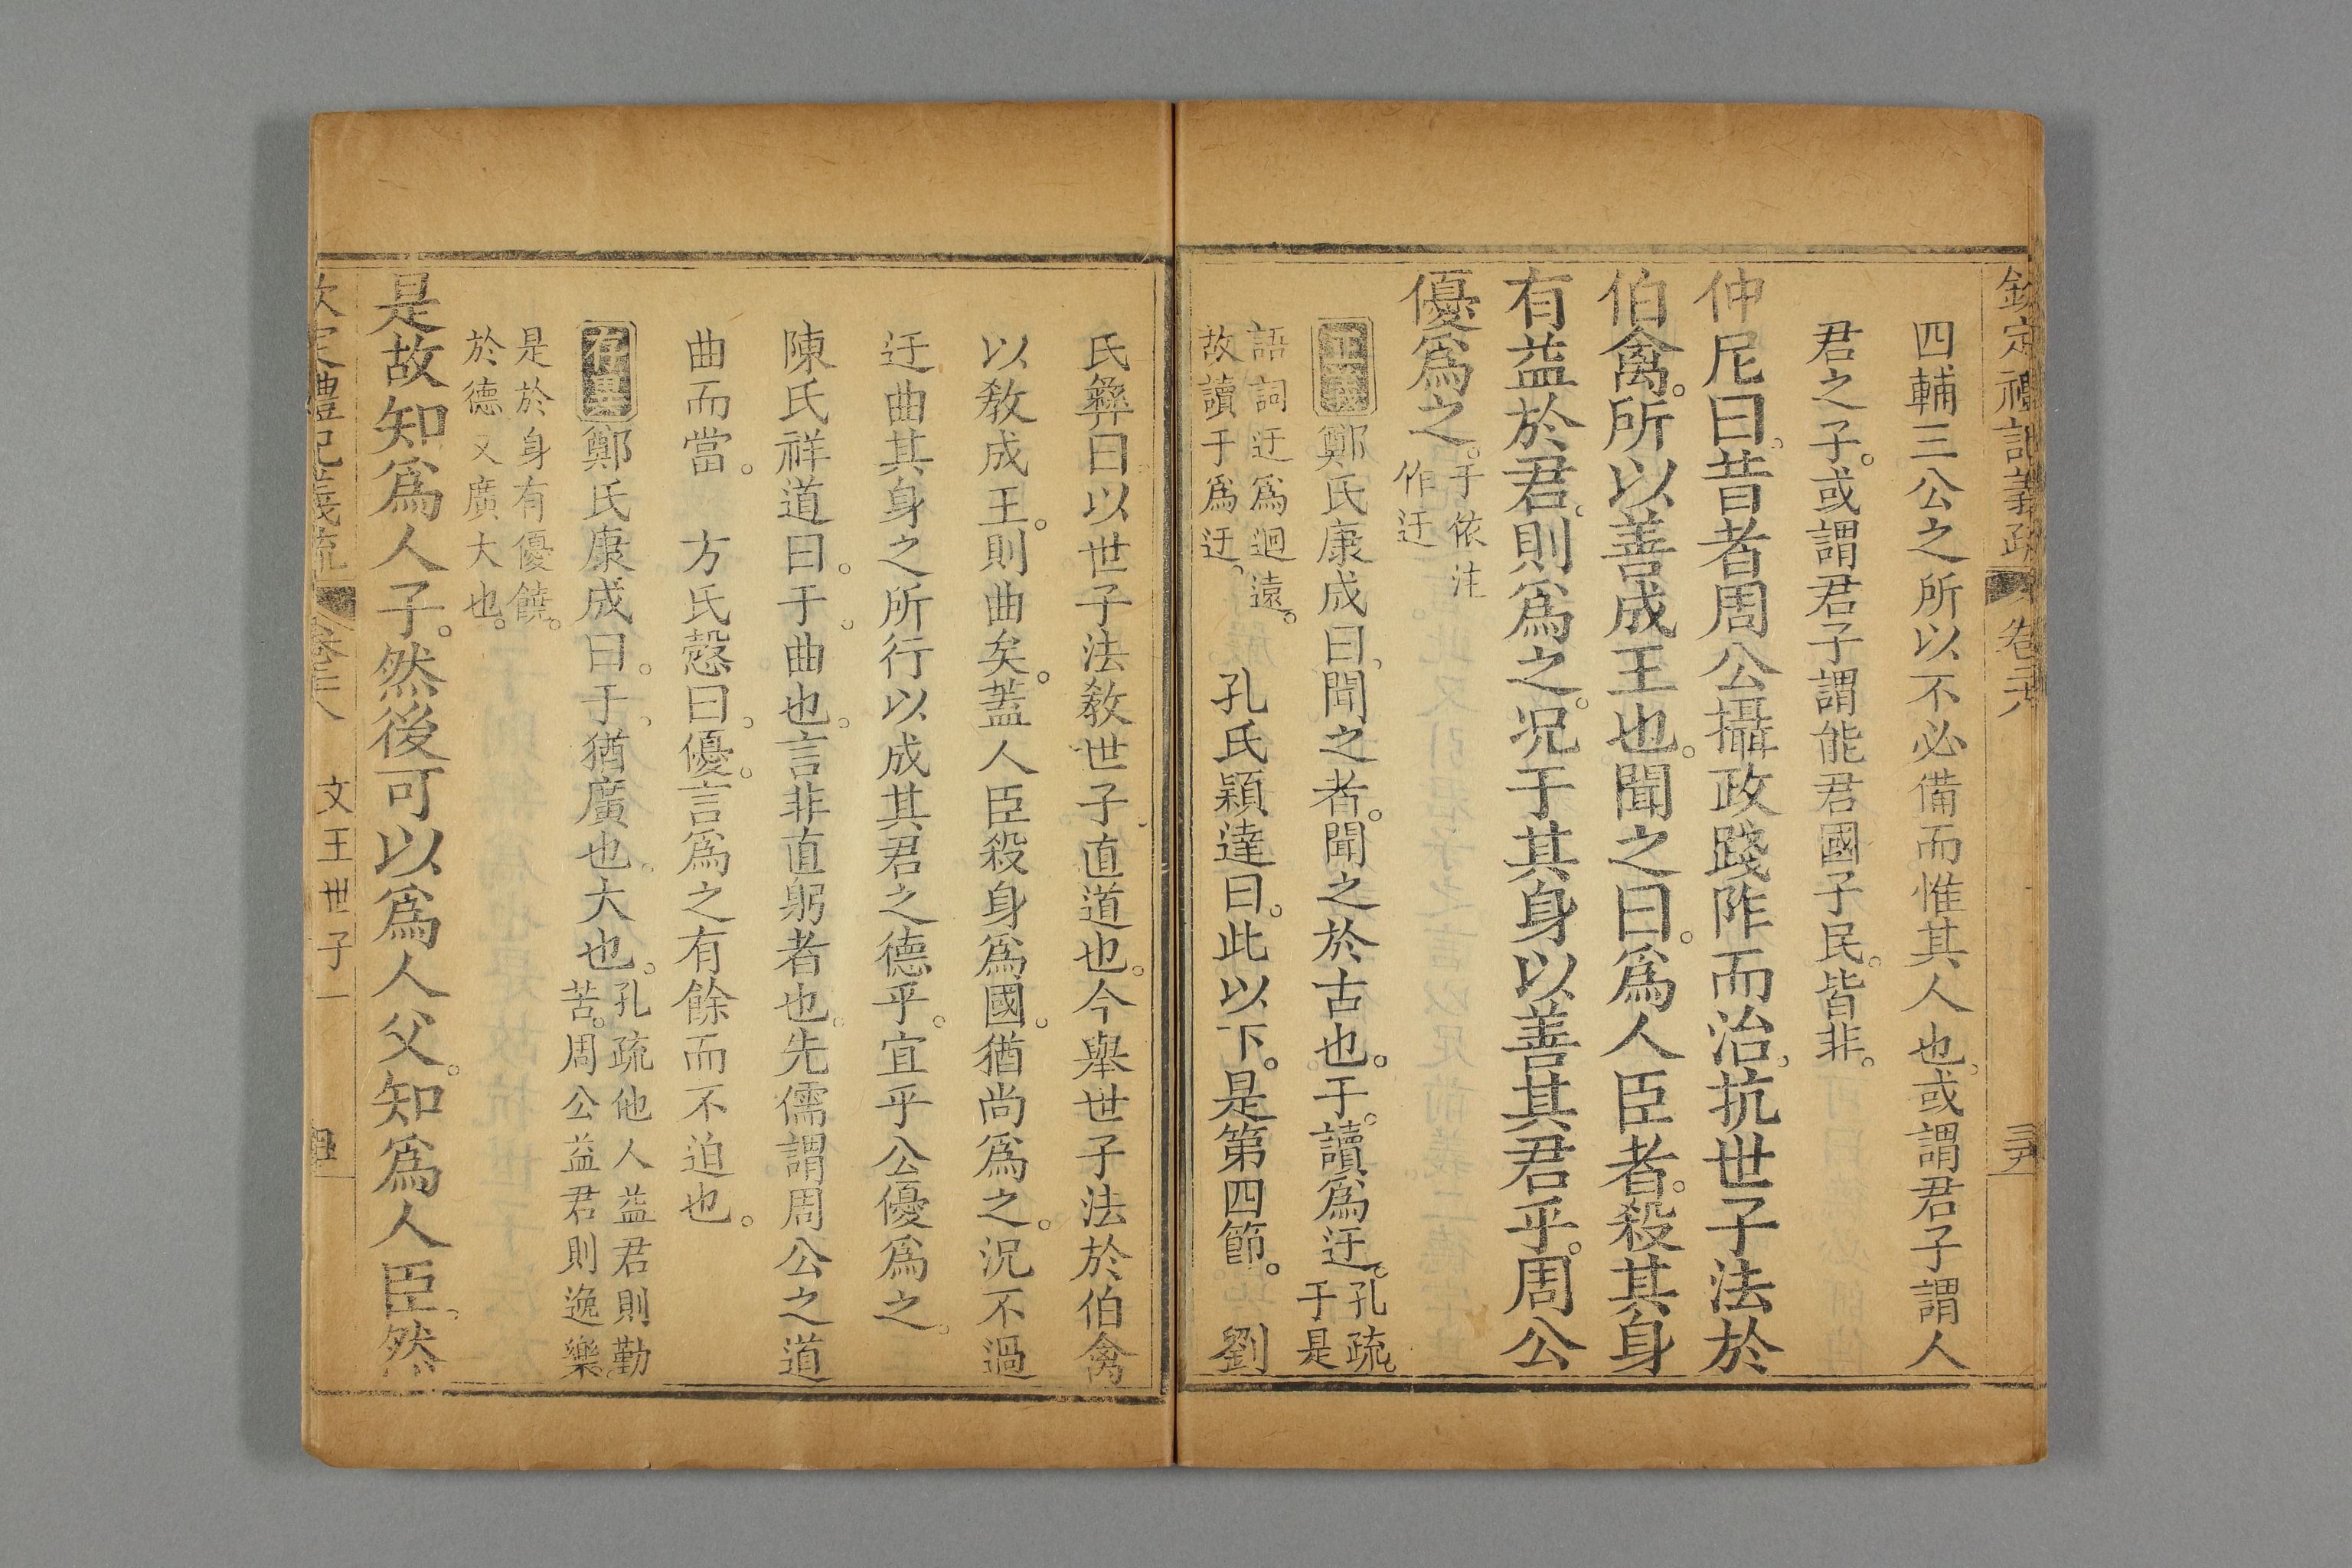 欽定禮記義疏 卷二十八
四輔三公之所以不必備而惟其人也或謂君子謂人
君之子。或謂君子謂能君國子民。皆非。
仲尼曰。昔者周公攝政踐阼而治。抗世子法於
伯禽。所以善成王也。聞之曰。爲人臣者。殺其身
有益於君。則爲之。況于其身以善其君乎。周公
優爲之。于依注作迂
正義鄭氏康成曰。聞之者。聞之於古也。于。讀爲迂。孔疏。于是
語詞迂爲迴遠。故讀于爲迂。 孔氏穎達曰。此以下。是第四節。 劉
氏彝曰以世子法敎世子直道也。今舉世子法於伯禽
以敎成王。則曲矣。蓋人臣殺身爲國。猶尚爲之。況不過
迂曲其身之所行以成其君之德乎。宜乎公優爲之。
陳氏祥道曰。于。曲也。言非直躬者也。先儒謂周公之道
曲而當。 方氏慤曰。優。言爲之有餘而不迫也。
存異鄭氏康成曰。于。猶廣也。大也。孔疏他人益君則勤苦。周公益君則逸樂。
是於身有優饒。於德又廣大也。
是故知爲人子。然後可以爲人父。知爲人臣。然
欽定禮記義疏 卷二十八 文王世子一